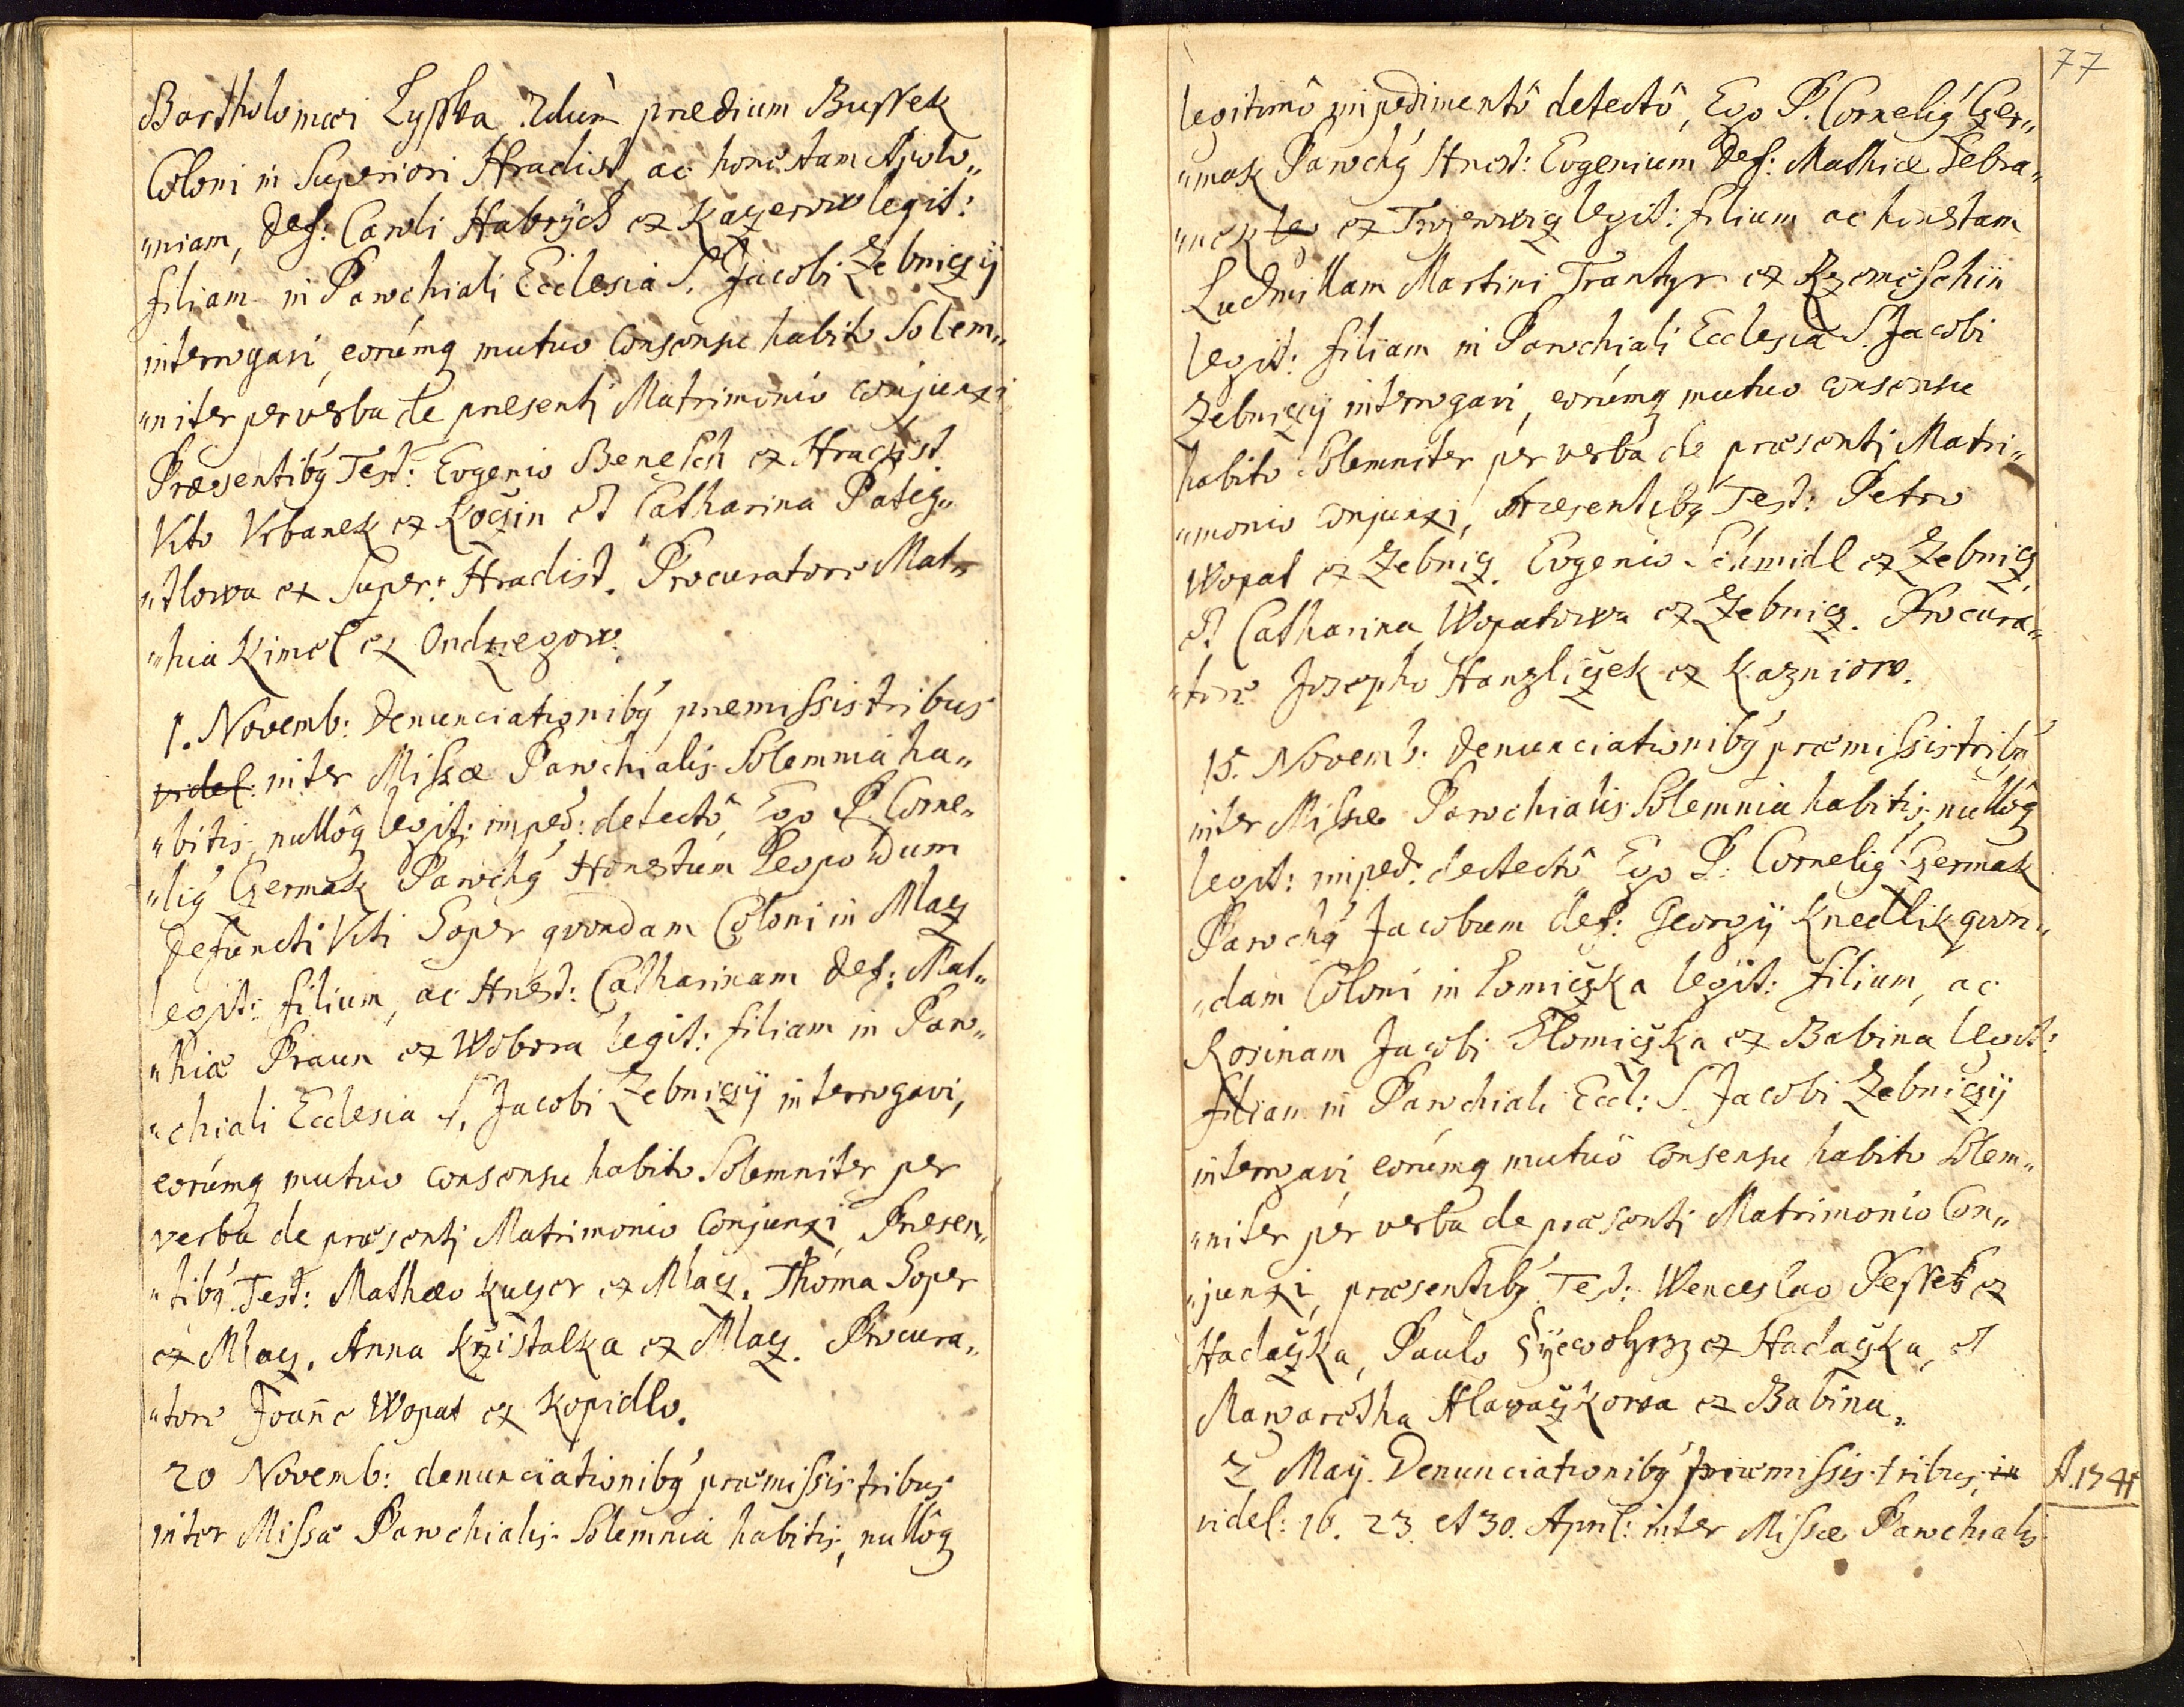 Bartholomæi Lyska aliàs prædium Bussek
Coloni in Superiori Hradist, ac honestam Apolo„
„niam, def: Caroli Habrych ex Kazerow legit:
filiam in Parochiali Ecclesia S. Jacobi Zebniczij
interrogavi, eorúmq mutuo Consensu habito Solem„
„niter per verba de præsenti Matrimonio conjunxi
Præsentibg Test: Eugenio Benesch ex Hradist
Vito Vrbanek ex Koczin et Catharina Pateg„
„dlowa ex Super: Hradist. Procuratore Mat„
„hia Kimel ex Ondrzegow.
1. Novemb: Denunciationibg præmissis tribus
videl: inter Missæ Parochialis Solemnia ha„
„bitis, nullôq legit: imped: detectô Ego P. Corne„
„lig Czermak Parochg Honestum Leopoldum
Defuncti Viti Soper quondam Coloni in Mlacz
legit: filium, ac Hnest: Catharinam Def: Mat„
„hiæ Praun ex Wobora legit: filiam in Paro„
„chiali Ecclesia S. Jacobi Zebniczij interrogavi,
eorúmq mutuo consensu habito Solemniter per
verba de præsenti Matrimonio Conjunxi Præsen„
„tibg Test: Mathæo Kuczer ex Mlacz. Thoma Soper
ex Mlacz. Anna Krzistalka ex Mlacz. Procura„
„tore Joanne Wopat ex Kopidlo.
20 Novemb: denunciationibg præmissis tribus
inter Missæ Parochialis Solemnia habitis, nullôq
77
legitimô impedimentô detectô, Ego P. Cornelig Czer„
„mak Parochg Hnest: Eugenium Def: Mathiæ Sebra„
„nek ex legit: filium ac honestam
Ludmillam Martini Trantyr ex Rzemeschin
legit: filiam in Parochiali Ecclesia S. Jacobi
Zebniczij interrogavi, eorúmq mutuo consensu
habito Solemniter per verba de præsenti Matri„
„monio conjunxi, Præsentibg Test: Petro
Wopat ex Zebnicz. Eugenio Schmidl ex Zebnicz
et Catharina Wopatowa ex Zebnicz. Procura„
„tore Josepho Hanzliczek ex Kazniow.
15. Novemb: denunciationibg præmissis tribg
inter Missæ Parochialis Solemnia habitis, nullôq
legit: imped: detectô Ego P. Cornelig Czermak
Parochg Jacobum def: Georgij Knedlik quon„
„dam Coloni in Lomiczka legit: filium, ac
Rosinam Jacobi Hlomiczka ex Babina legit:
filiam in Parochiali Eccl: S. Jacobi Zebniczij
interrogavi eorúmq mutuô consensu habito Solem„
„niter per verba de præsenti Matrimonio Con„
„junxi, præsentibg Test: Wenceslao Pessek ex
Hadaczka, Paulo ex Hadaczka, et
Margaretha Hlawaczkowa ex Babina.
2 Maij. Denunciationibg præmissis tribus, in
A. 1741
videl: 16. 23. et 30. April: inter Missæ Parochialis